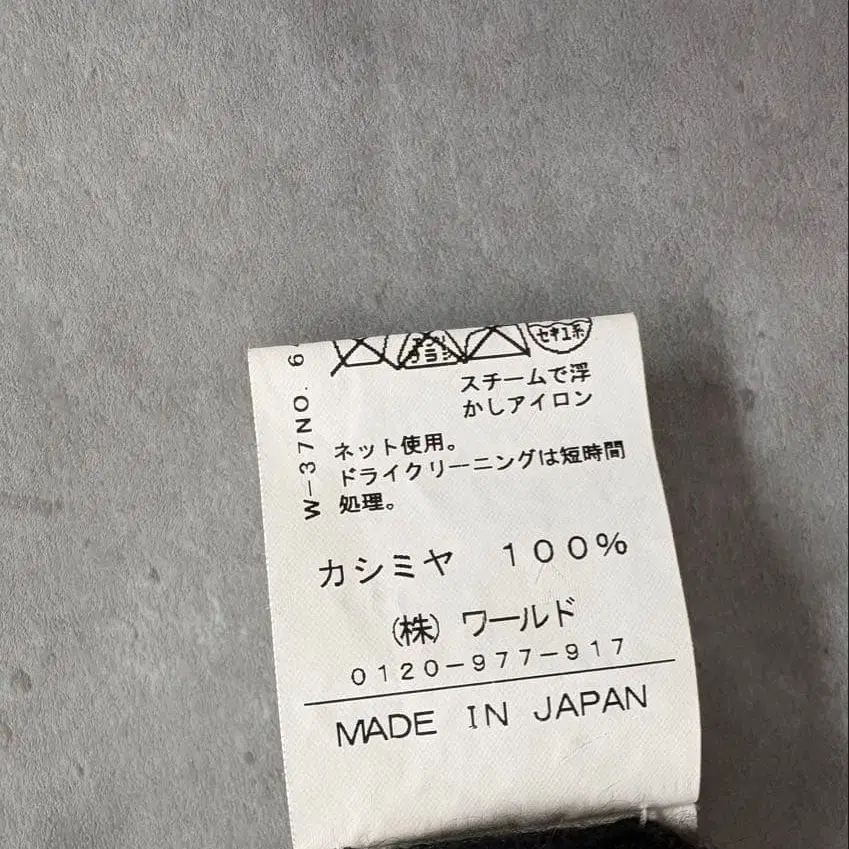 セキユ系
スチームで浮
かしアイロン
ネット使用。
ドライクリーニングは短時間
処理。
カシミヤ 100%
(株) ワールド
0120-977-917
MADE IN JAPAN
W-37NO. 6